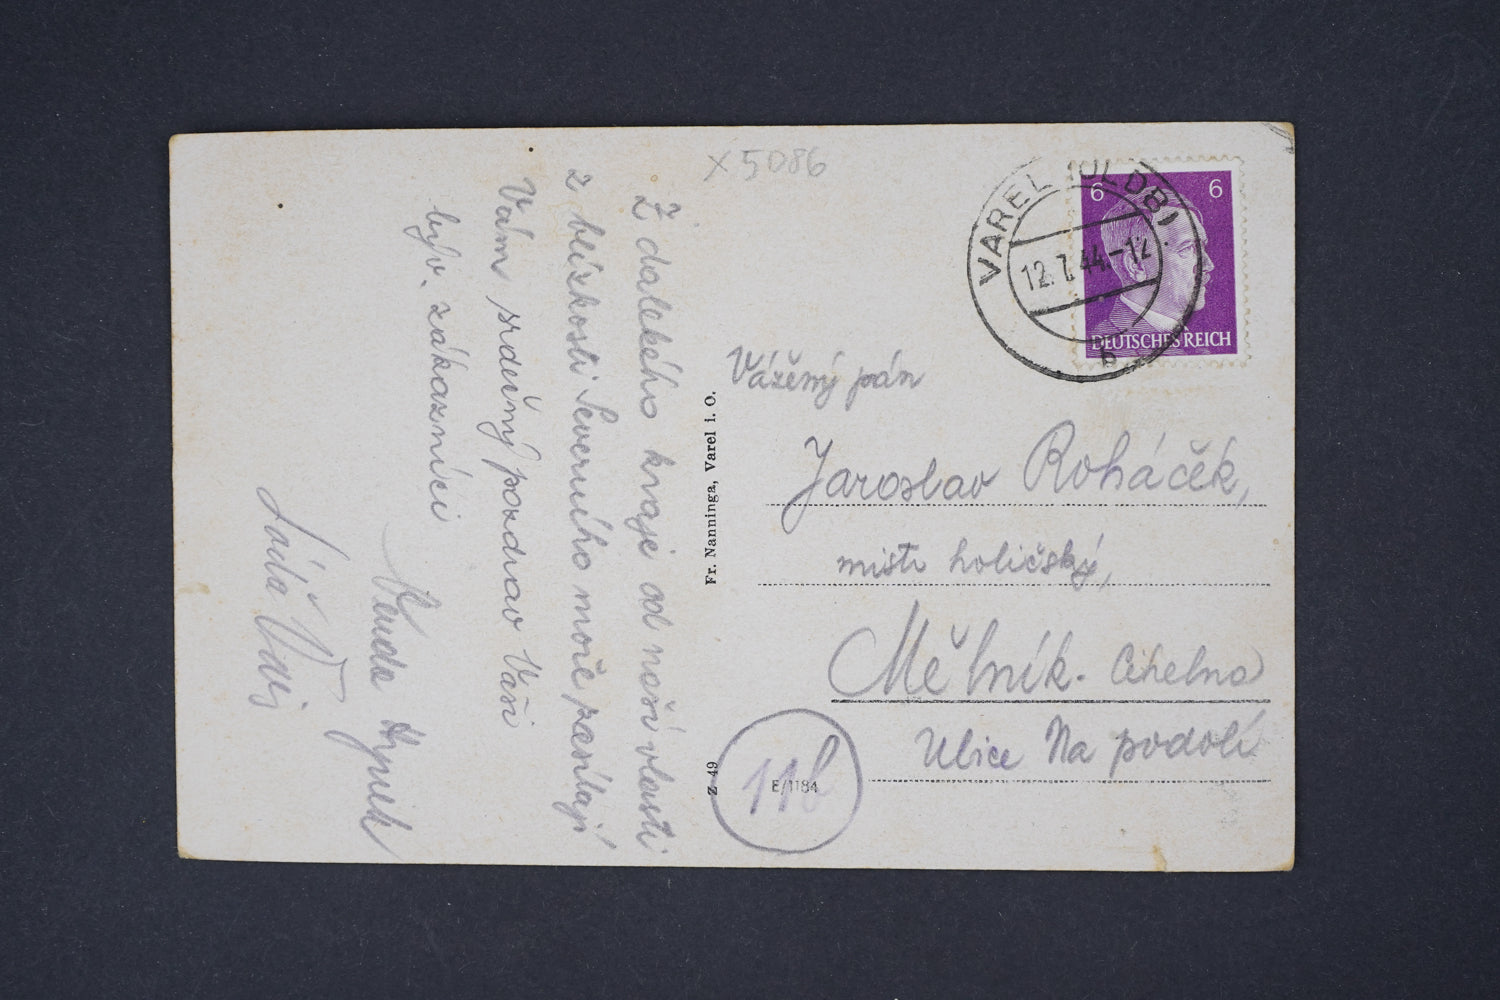 x 5086
Z dalekého kraje od naší vlasti
z blízkosti Severního moře zasílají
Vám srdečný pozdrav Vaši
býv. zákazníci
Hynek
Láďa
Fr. Nanninga, Varel i. O.
Z 49
VAREL (OLDB)
12.7.44.-12
b
6 6
DEUTSCHES REICH
Vážený pán
Jaroslav Roháček,
mistr holičský,
Mělník. Cihelna
Ulice Na podolí
E/1184
11b